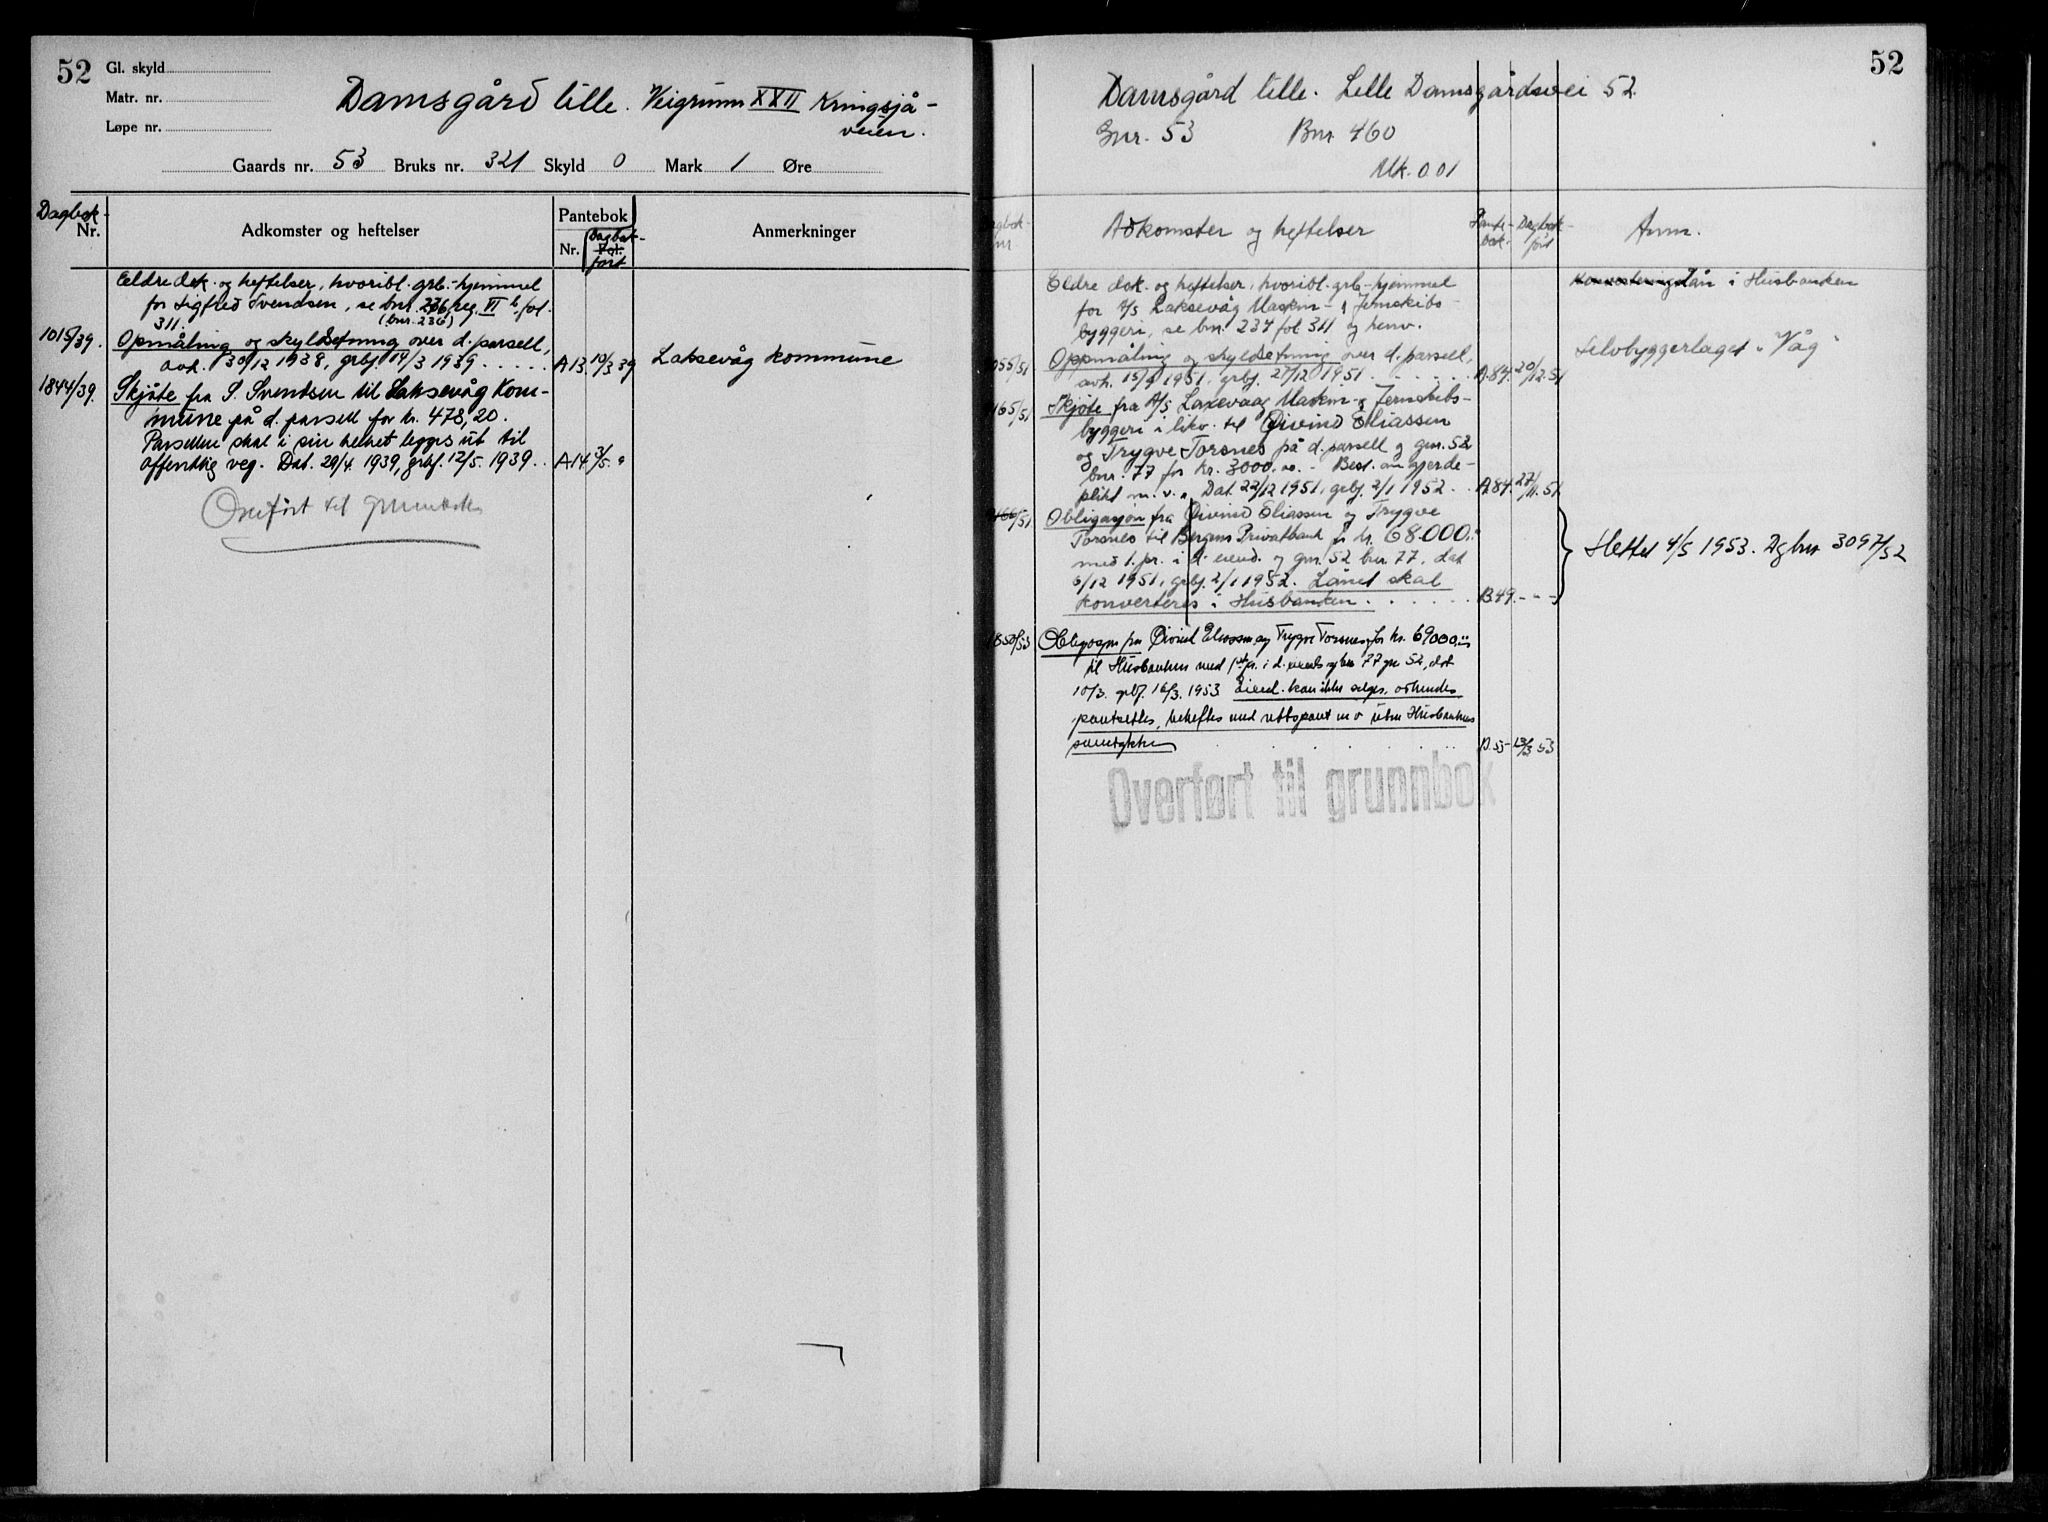 52
Gl. skyld
Matr. nr.
Løpe nr.
Damsgård lille. Veigrunn XXII Kringsjå-
veien.
Gaards nr. 53 Bruks nr. 321 Skyld 0 Mark 1 Øre
Dagbok-
Nr.
Adkomster og heftelser
Pantebok
Nr.
Fol.
Dagbok-
ført
Anmerkninger
Eldre dok. og heftelser, hvoribl. grb.-hjemmel
for Sigfred Svendsen, se bnr. 236, reg. VI b, fol.
311. (bnr. 236)
1015/39. Opmåling og skyldsetning over d. parsell,
avh. 30/12 1938, grbf. 14/3 1939 . . . . . A 13 10/3 39
Laksevåg kommune
1844/39. Skjøte fra S. Svendsen til Laksevåg Kom-
mune på d. parsell for kr. 478,20.
Parsellen skal i sin helhet legges ut til
offentlig veg. Dat. 29/4. 1939, grbf. 12/5. 1939 . . A 14 3/5. "
Overført til grunnbok
52
Damsgård lille. Lille Damsgårdsvei 52.
Gnr. 53 Bnr. 460
Mk. 0.01
Dagbok-
nr
Adkomster og heftelser
Pante-
bok-
Dagbok-
ført
Anm.
Eldre dok. og heftelser, hvoribl. grb-hjemmel
for A/S Laksevåg Maskin- & Jernskibs-
byggeri, se bnr. 234 fol 311 og henv.
Konverteringslån i Husbanken
Oppmåling og skyldsetning over d. parsell,
avh. 15/9 1951, grbf. 27/12 1951 . . . . . . A.84. 20/12.51
Selvbyggerlaget "Våg"
Skjøte fra A/S Laxevaag Maskin- & Jernskibs-
byggeri i likv. til Øivind Eliassen
og Trygve Torsnes på d. parsell og gnr. 52
bnr. 77 for kr. 3000.00. - Best. om gjerde-
plikt m. v. Dat. 22/12 1951, grbf. 2/1 1952 . . A.84. 27/11.51
Obligasjon fra Øivind Eliassen og Trygve
Torsnes til Bergens Privatbank for kr. 68.000.-
med 1. pr. i d. eiend. og gnr. 52 bnr. 77, dat
6/12 1951, grbf. 2/1 1952. Lånet skal
konverteres i Husbanken . . . . . . B.49. - - -
Slettet 4/5 1953. Dgbnr 3097/52
Obligasjon fra Øivind Eliassen og Trygve Torsnes for kr. 69000.-
til Husbanken med 1 pr. i d. eiend. og bnr 77 gnr 52, dat
10/3. grbf. 16/3. 1953 Eiend. kan ikke selges, avhendes
pantsettes, beheftes med utleggspant m v uten Husbankens
samtykke . . . . . . B.53- 13/3 53
Overført til grunnbok